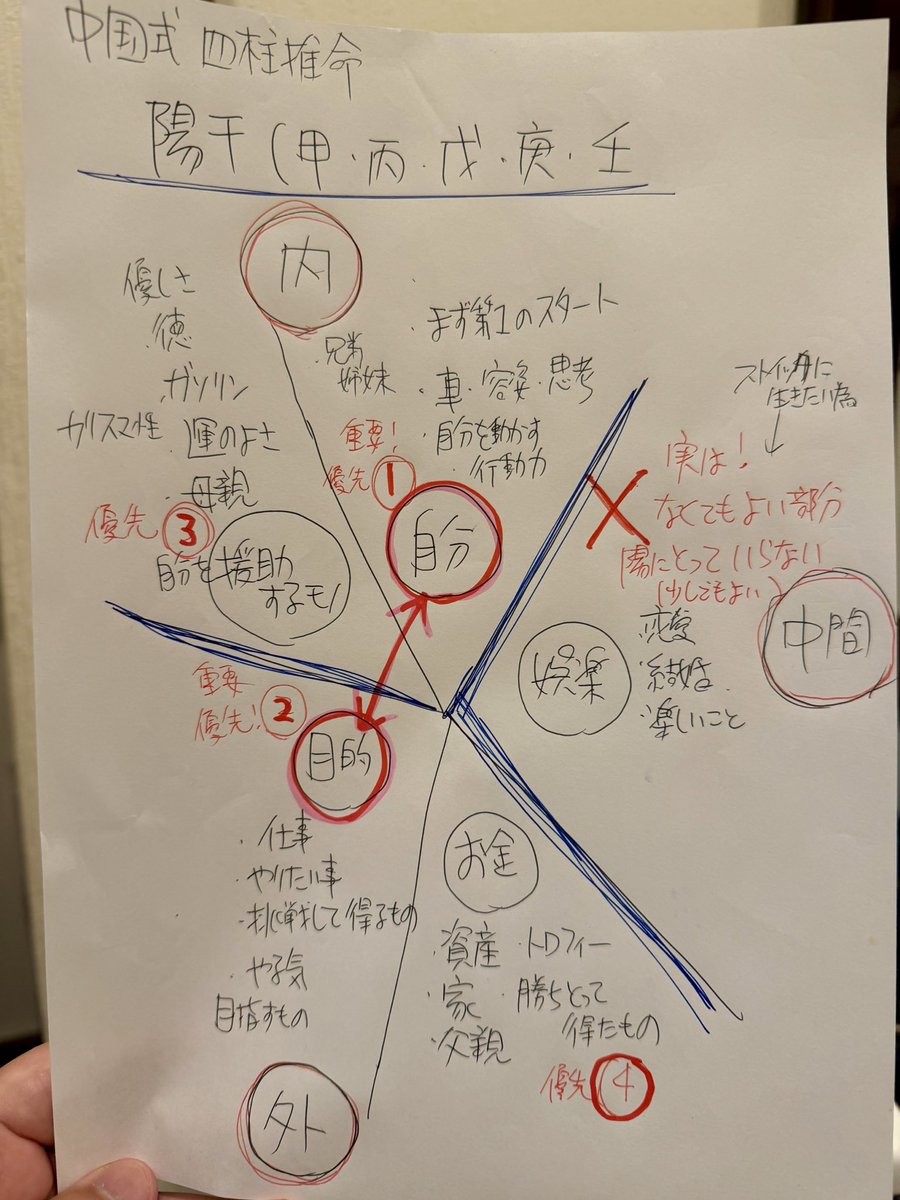 中国式 四柱推命
陽干(甲・丙・戊・庚・壬
内
優しさ
・徳
・ガソリン
カリスマ性
・運のよさ
・母親
優先③
自分を援助
するモノ
・兄弟
姉妹
・まず第1のスタート
・車・容姿・思考
・自分を動かす
・行動力
重要!
優先①
自分
ストイックに
生きたい為
実は!
なくてもよい部分
陽にとっていらない
(少しでもよい)
中間
娯楽
恋愛
・結婚
・楽しいこと
重要
優先!②
目的
・仕事
・やりたい事
・挑戦して得るもの
・やる気
目指すもの
外
お金
・資産
・家
・父親
・トロフィー
・勝ちとって
得たもの
優先④